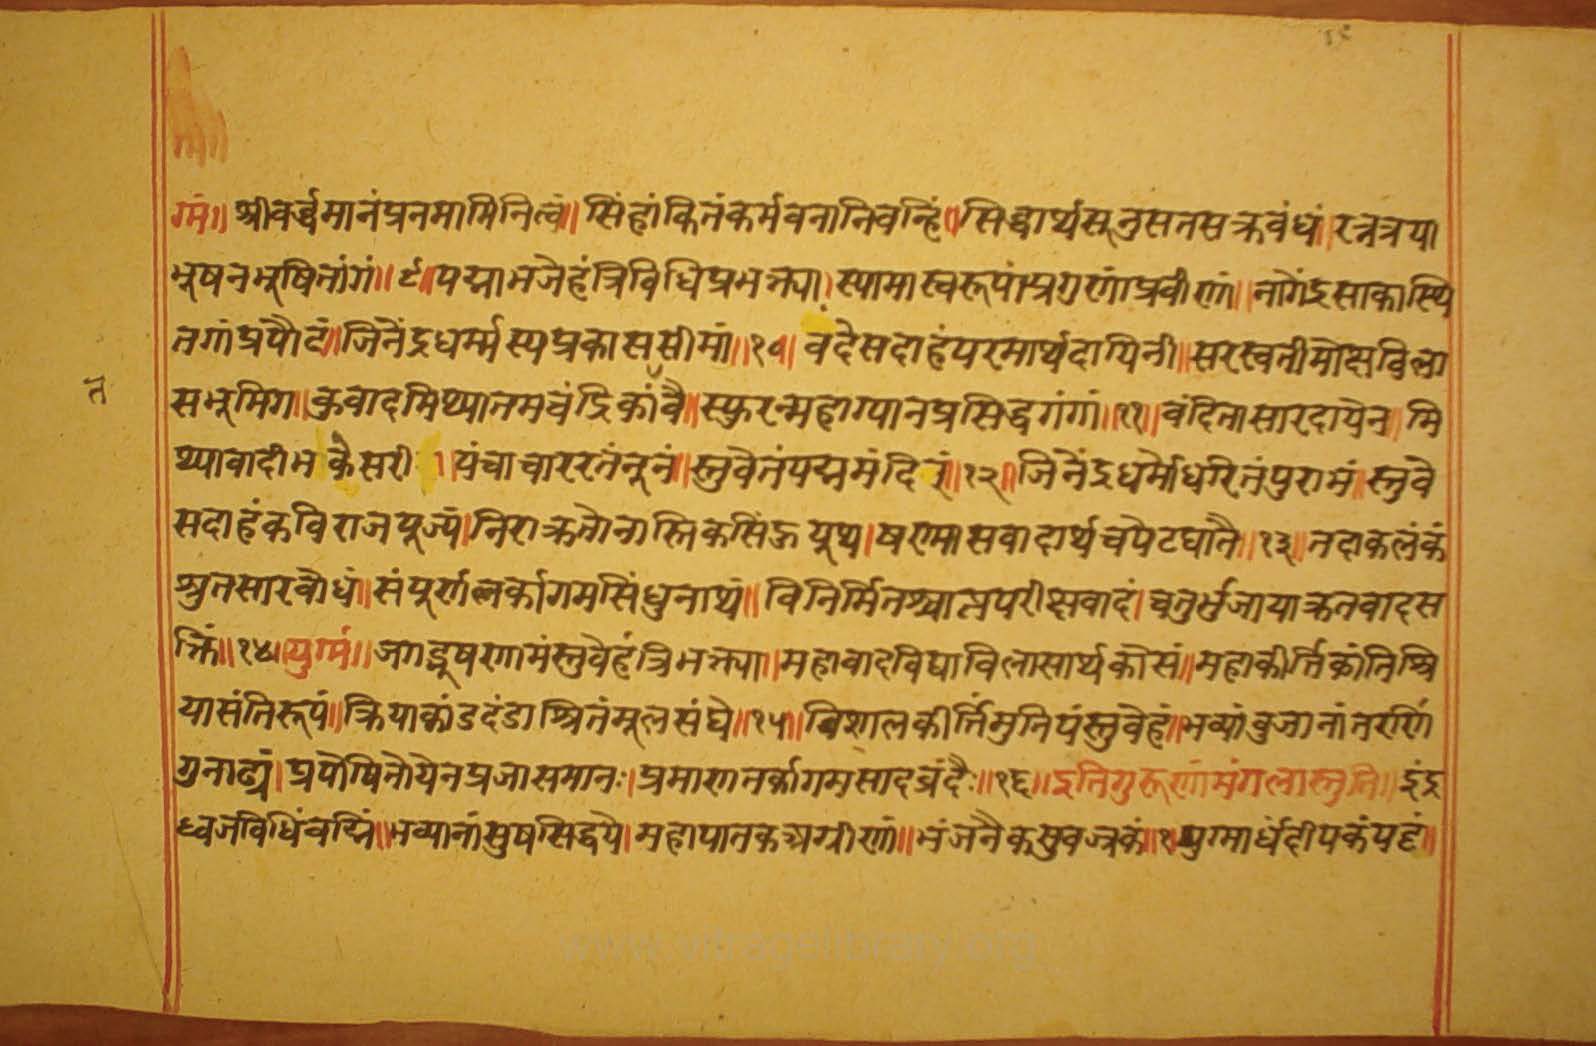 त
ग्मं॥ श्रीवर्द्धमानंप्रनमामिनित्वं॥ सिंहांकितंकर्मवनानिवन्हिं॥सिद्धार्थसूनुसतसक्रवंधं॥रत्नत्रया
भूषनभूषितांगं॥९॥पद्माभजेहंत्रिविधिप्रभक्त्या।स्यामास्वरूपांप्रगुणांप्रवीणां॥नागेंद्रसाकास्थि
तगांप्रपौटं॥जिनेंद्रधर्म्मस्यप्रकाससीमां॥१०॥वंदेसदाहंपरमार्थदायिनी॥सरस्वतीमोक्षविला
सभूमिग॥कुवादमिथ्यातमचंद्रिकांवै॥स्फुरन्महाग्यानप्रसिद्धगंगां॥११॥वंदितासारदायेन॥मि
थ्यावादीभकेसरी॥पंचाचाररतंनूनं॥स्तुवेतंपद्ममंदिरं॥१२॥जिनेंद्रधर्मोधरितंपुरामं॥स्तुवे
सदाहंकविराजपूज्यं।निराक्रतोनास्तिकसिंऊयूथ।षणमासवादार्थचपेटघातै॥१३॥तदाकलंकं
श्रुतसारबोधं॥संपूर्णतर्कागमसिंधुनाथं॥विनिर्मितश्चाप्तपरीक्षवादं।चतुर्भुजायाक्रतवादस
क्तिं॥१४॥युग्मं॥जगद्भूषणामंस्तुवेहंत्रिभक्त्या॥महावादविघाविलासार्थकोसं॥महाकीर्त्तिकांतिश्रि
यासंतिरूपं॥क्रियाकांडदंडाश्रितंमूलसंघे॥१५॥विशालकीर्त्तिमुनिपंस्तुवेहं॥भव्यांवुजानांतरणिं
गुनाढ्यं।प्रपोषितोयेनप्रजासमानः।प्रमाणतर्कागमसादव्रंदैः॥१६॥इतिगुरूणांमंगलास्तुति॥इंद्र
ध्वजविधिंवच्मिं॥भव्यानांसुषसिद्धये॥महापातकअग्रीणां॥भंजनैकसुवज्रकं॥१॥युग्मार्धंदीपकंपद्दं॥
www.vitragelibrary.org